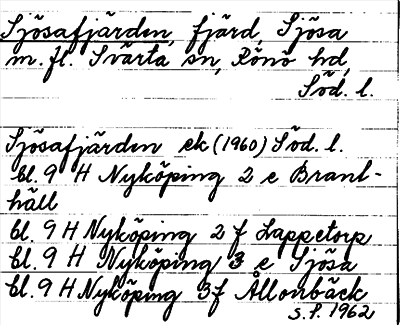 Sjösafjärden, fjärd, Sjösa
m. fl. Svärta sn, Rönö hd,
Söd. l.
Sjösafjärden ek (1960) Söd. l.
bl. 9 H Nyköping 2 e Brant-
häll
bl. 9 H Nyköping 2 f Lappetorp
bl. 9 H Nyköping 3 e Sjösa
bl. 9 H Nyköping 3f Ållonbäck
S. P. 1962